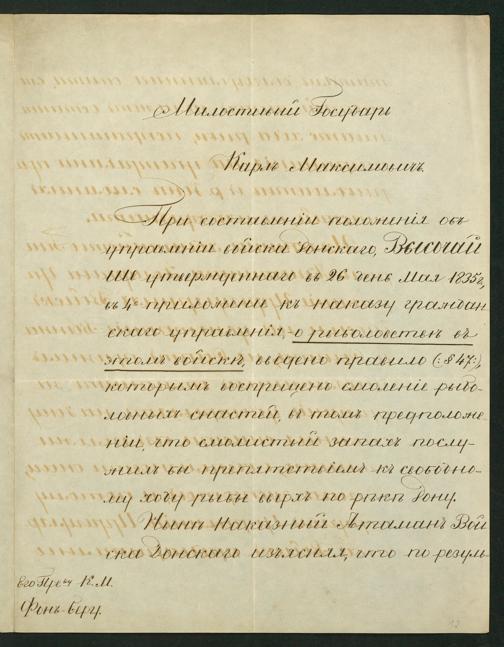 Милостивый Государь
Карлъ Максимовичъ.
При составленіи положенія объ
управленіи войска Донскаго, Высочай
ше утвержденнаго въ 26 день Мая 1835 г,
въ 4 приложеніи къ наказу граждан
скаго управленія, о рыболовствѣ въ
этомъ войскѣ, введено правило (§ 47),
которымъ воспрещено смоленіе рыбо-
ловныхъ снастей, въ томъ предположе-
ніи, что смолистый запахъ послу-
жилъ бы препятствіемъ къ свободно-
му ходу рыбы вверхъ по рѣкѣ Дону.
Нынѣ Наказный Атаманъ Вой
ска Донскаго изъяснял, что по резуль
Его Прев К.М.
Фонъ-Беру.
12